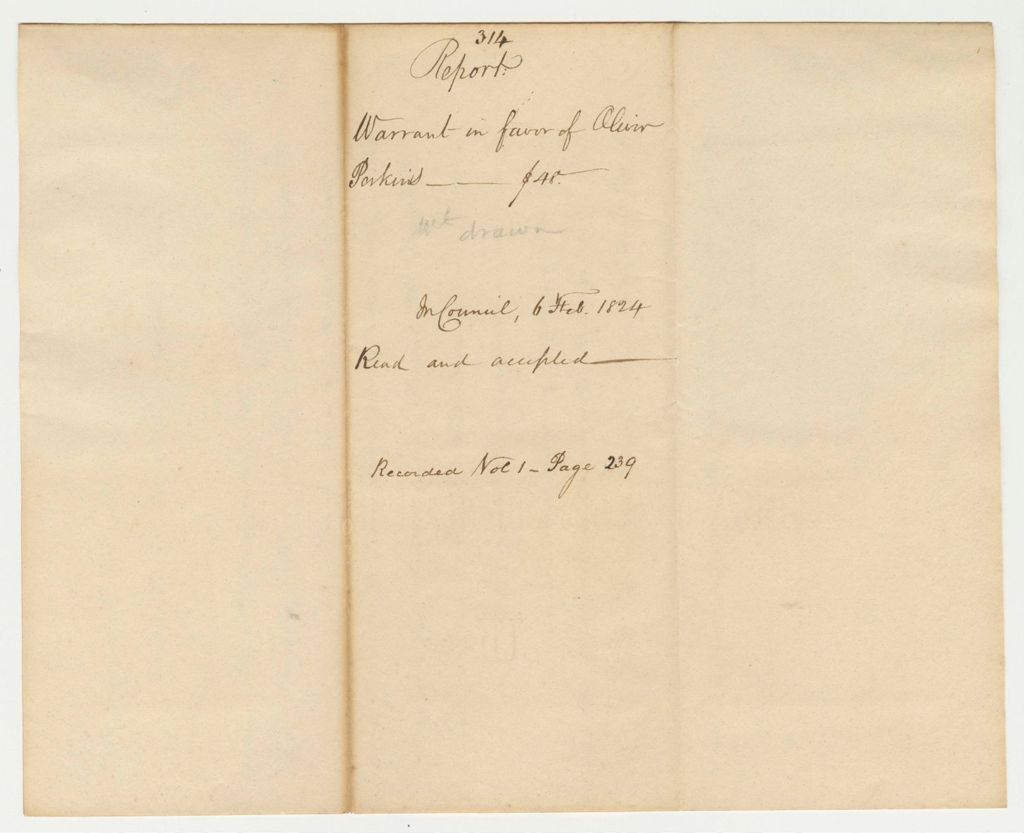 314
Report.
Warrant in favor of Oliver
Perkins — — $48.—
Wt drawn
In Council, 6 Feb. 1824
Read and accepted —
Recorded Vol 1 – Page 239